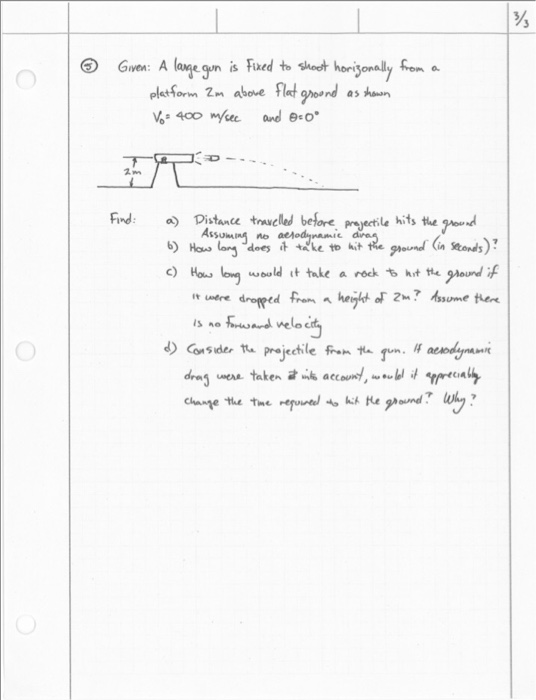 3/3
⑤ Given: A large gun is Fixed to shoot horizonally from a
platform 2m above flat ground as shown
V₀= 400 m/sec and θ=0°
2m
Find: a) Distance travelled before projectile hits the ground
Assuming no aerodynamic drag
b) How long does it take to hit the ground (in seconds)?
c) How long would it take a rock to hit the ground if
it were dropped from a height of 2m? Assume there
is no forward velocity
d) Consider the projectile from the gun. If aerodynamic
drag were taken into account, would it appreciably
change the time required to hit the ground? Why?